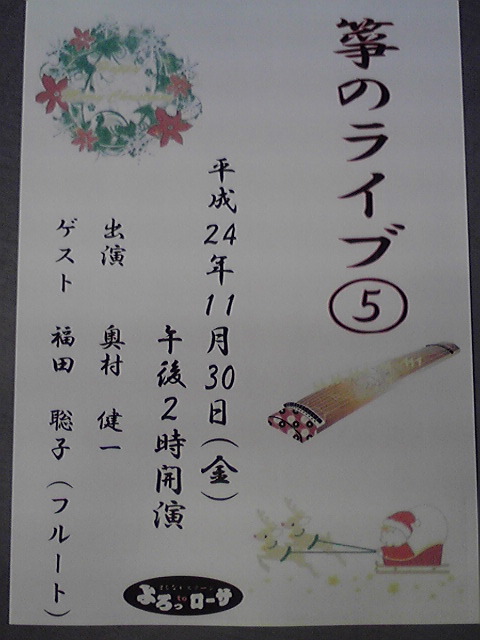 箏のライブ⑤
平成24年11月30日(金)
午後2時開演
出演 奥村 健一
ゲスト 福田 聡子(フルート)
よろっローサ